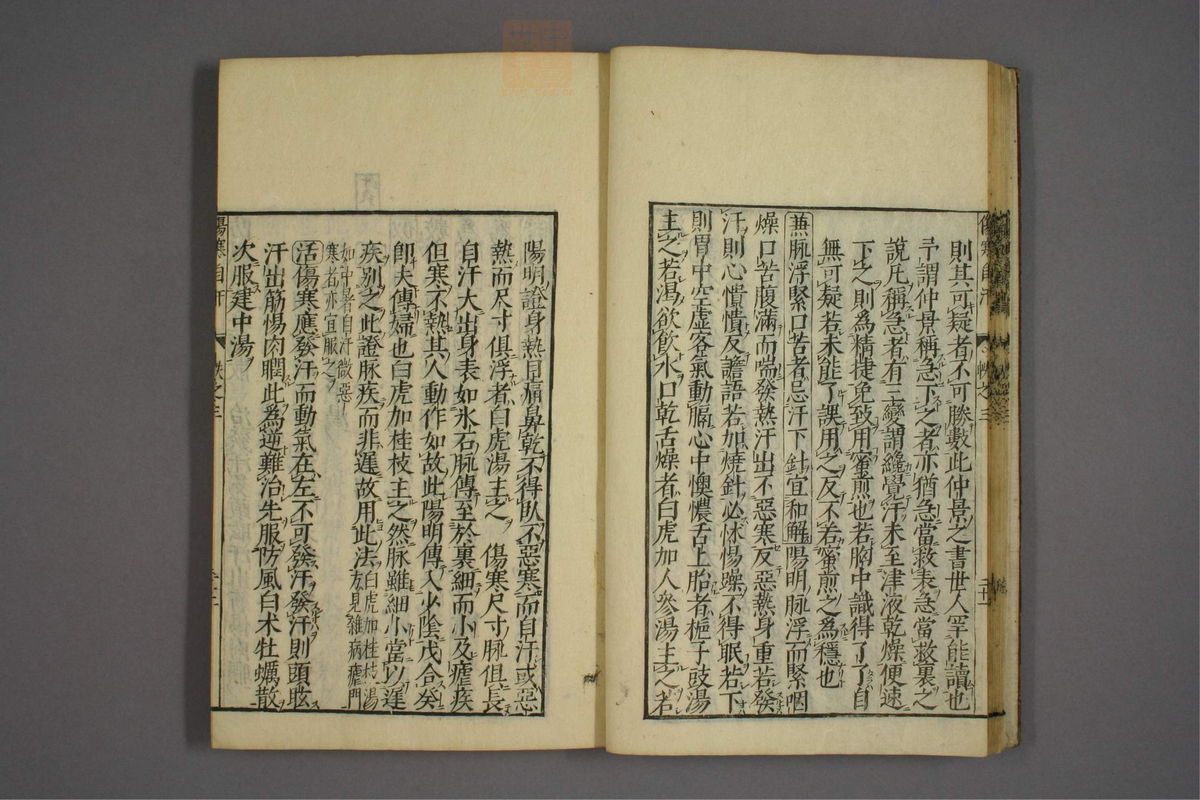 則其可疑者不可勝數此仲景之書世人罕能讀也
予謂仲景稱急下之者亦猶急當救表急當救裏之
說凡稱急者有三變謂纔覺汗未至津液乾燥便速
下之則爲精捷免致用蜜煎也若胸中識得了了自
無可疑若未能了誤用之反不若蜜煎之爲穩也
兼脉浮緊口苦者忌汗下針宜和解陽明脉浮而緊咽
燥口苦腹滿而喘發熱汗出不惡寒反惡熱身重若發
汗則心憒憒反譫語若加燒針必怵惕躁不得眠若下
則胃中空虛客氣動膈心中懊憹舌上胎者梔子豉湯
主之若渴欲飲水口乾舌燥者白虎加人參湯主之若
陽明證身熱目痛鼻乾不得臥不惡寒而自汗或惡
熱而尺寸俱浮者白虎湯主之 傷寒尺寸脉俱長
自汗大出身表如氷石脉傳至於裏細而小及瘧疾
但寒不熱其人動作如故此陽明傳入少陰戊合癸
卽夫傳婦也白虎加桂枝主之然脉雖細小當以遲
疾別之此證脉疾而非遲故用此法白虎加桂枝湯
方見雜病瘧門
如中暑自汗微惡
寒者亦宜服之
活傷寒應發汗而動氣在左不可發汗發汗則頭眩
汗出筋惕肉瞤此為逆難治先服防風白术牡蠣散
次服建中湯
傷寒自汗
帙之三